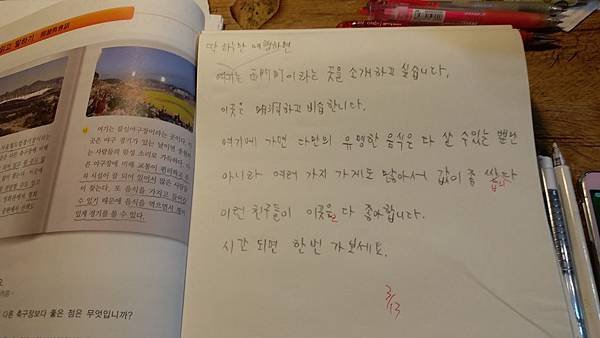 읽고 말하기
여기는 잠실야구장이라는 곳이다. 이
곳은 야구 경기가 있는 날이면 응원하
는 사람들의 함성 소리로 가득하다. 다
른 야구장에 비해 교통이 편리하고 편
의 시설이 잘 되어 있어서 많은 사람들
이 찾는다. 또 음식을 가지고 들어갈
수 있기 때문에 음식을 먹으면서 재미
있게 경기를 볼 수 있다.
다른 축구장보다 좋은 점은 무엇입니까?
딱 하루만 여행하면
여기는 西門町이라는 곳을 소개하고 싶습니다.
이곳은 明洞하고 비슷합니다.
여기에 가면 다만의 유명한 음식은 다 살 수 있을 뿐만
아니라 여러 가지 가게도 많아서 값이 좀
이런 친구들이 이곳을 다 좋아합니다.
시간 되면 한번 가보세요.
3/13